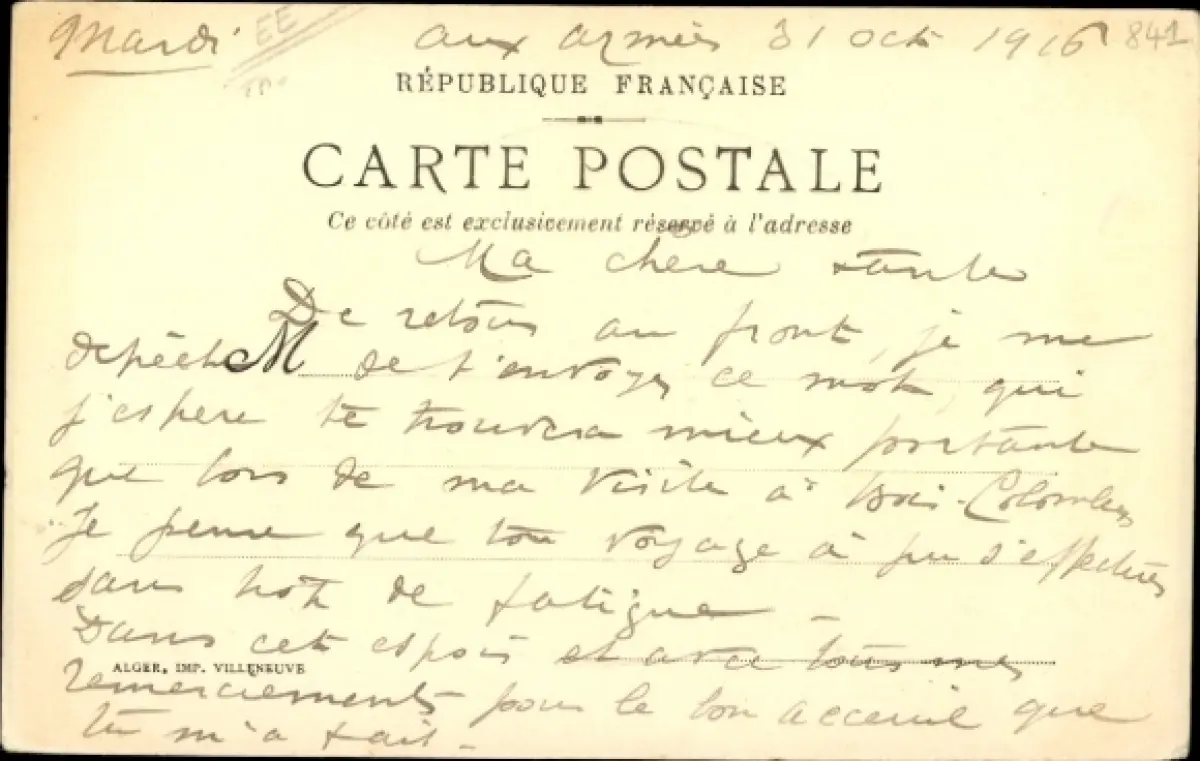 Mardi aux armées 31 oct 1916 841
EE
RÉPUBLIQUE FRANÇAISE
CARTE POSTALE
Ce côté est exclusivement réservé à l'adresse
Ma chère tante
De retour au front, je me
dépêche M de t'envoyer ce mot, qui
j'espere te trouvera mieux portante
que lors de ma visite à Bois-Colombes
Je pense que ton voyage à pu s'effectuer
sans trop de fatigue -
Dans cet espoir et avec tous mes
ALGER, IMP. VILLENEUVE
remerciements pour le bon acceuil que
tu m'a fait -